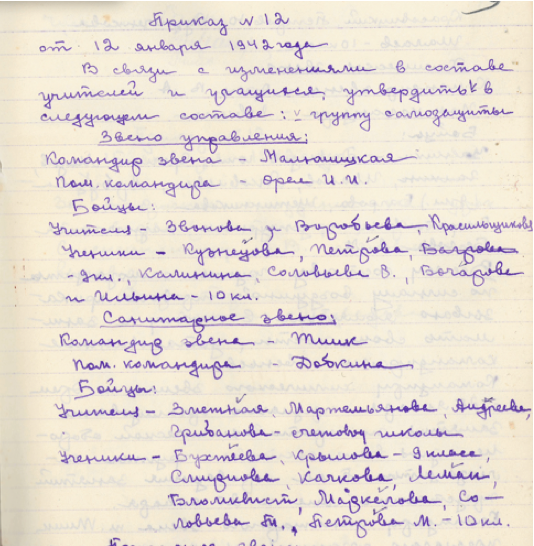 Приказ № 12
от 12 января 1942 года
В связи с изменениями в составе
учителей и учащихся, утвердить в
следующем составе: v группу самозащиты
Звено управления:
Командир звена - Малюшицкая
Пом. командира - Орел И.И.
Бойцы:
Учителя - Звонова и Воробьева, Красильщикова
Ученики - Кузнецова, Петрова, Багрова
- 9 кл., Калинина, Соловьева В., Бочарова
и Ильина - 10 кл.
Санитарное звено:
Командир звена - Тиик
Пом. командира - Добкина
Бойцы:
Учителя - Зметная, Мартемьянова, Андреева,
Грибанова - счетовод школы
Ученики - Бухтеева, Крылова - 9 класс,
Смирнова, Качкова, Леман,
Бломквист, Маркелова, Со-
ловьева Т., Петрова М. - 10 кл.